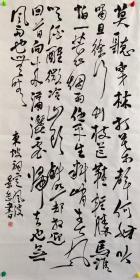 莫聽穿林打葉聲何妨吟
嘯且徐行竹杖芒鞋輕勝馬誰
怕一蓑烟雨任平生料峭春風
吹酒醒微冷山頭斜照却相迎
回首向來蕭瑟處歸去也無
風雨也無晴
東坡詞定風波